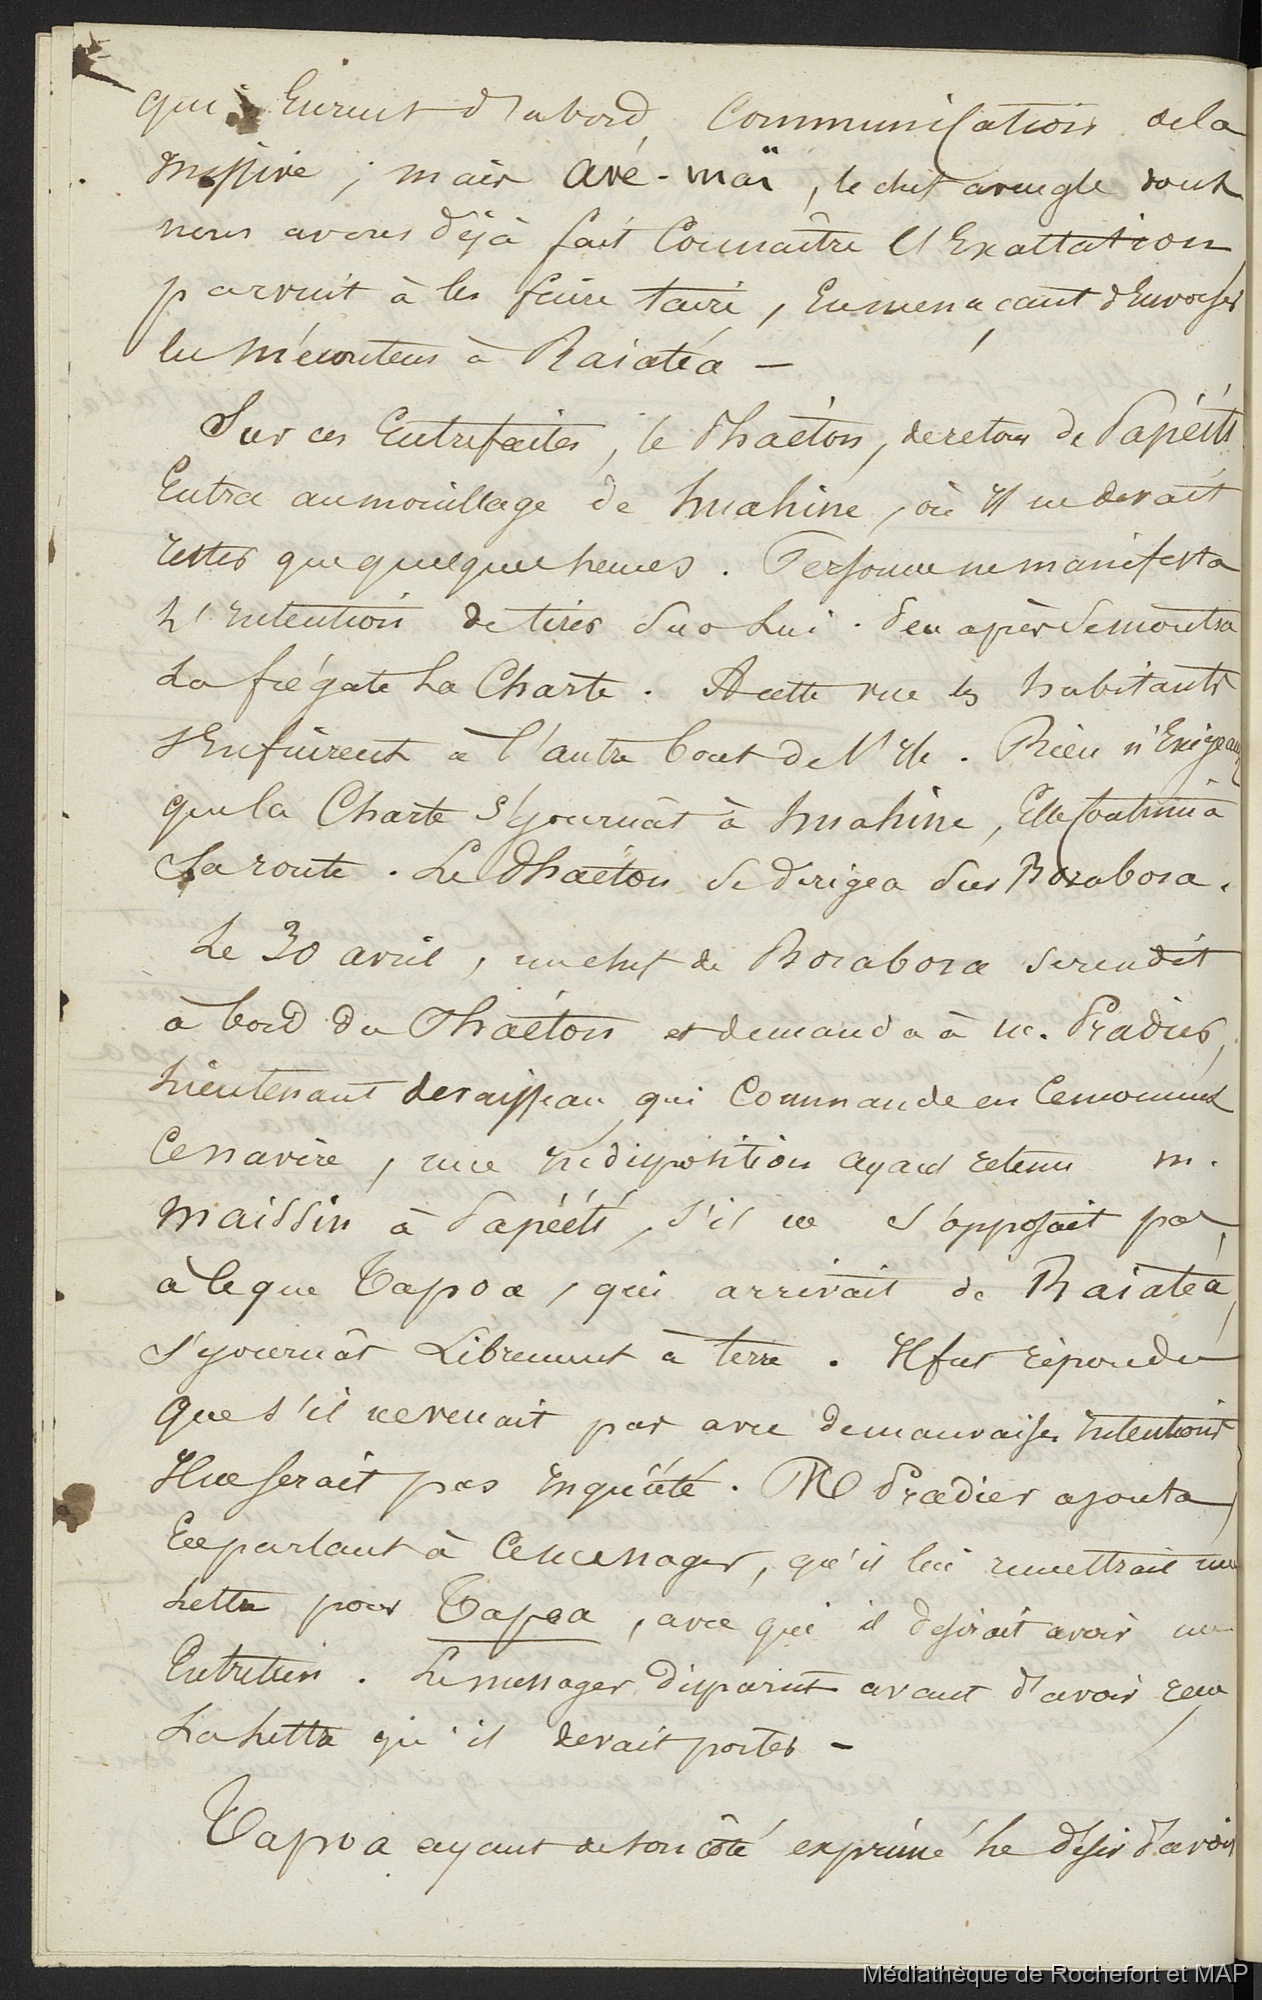 qui Eurent d'abord Communication de la
missive ; mais avé-maï, le chef aveugle dont
nous avons déjà fait Connaître l'Exaltation
parvint à les faire taire, En menaçant d'Envoyer
les Mécontens à Raiatéa —
Sur ces Entrefaites, le Phaéton, de retour de Papéïti
Entra au mouillage de huahine, où Il ne devait
rester que quelques heures. Personne ne manifesta
L'Intention de tirer sur Lui. Peu après se montra
La frégate La Charte. A cette vue les habitants
s'Enfuirent à l'autre bout de l'Ile. Rien n'Exigeant
que la Charte séjournât à huahine, Elle Continua
Sa route. Le Phaéton se dirigea sur Borabora.
Le 30 avril, un chef de Borabora se rendit
à bord du Phaéton et demanda à M. Pradier,
Lieutenant de vaisseau qui Commande en Ce moment
Ce navire, une Indisposition ayant retenu M.
Maissin à Papéété, s'il ne s'opposait pas
à Ce que Tapoa, qui arrivait de Raiatéa,
séjournât Librement à terre. Il fut répondu
que s'il ne venait pas avec de mauvaises Intentions
Il ne serait pas Inquiété. M Pradier ajouta
En parlant à Ce messager, qu'il lui remettrait une
Lettre pour Tapoa, avec qui il désirait avoir un
Entretien. Le messager disparut avant d'avoir reçu
La Lettre qu'il devait porter —
Tapoa ayant de son côté exprimé Le désir d'avoir
Médiathèque de Rochefort et MAP